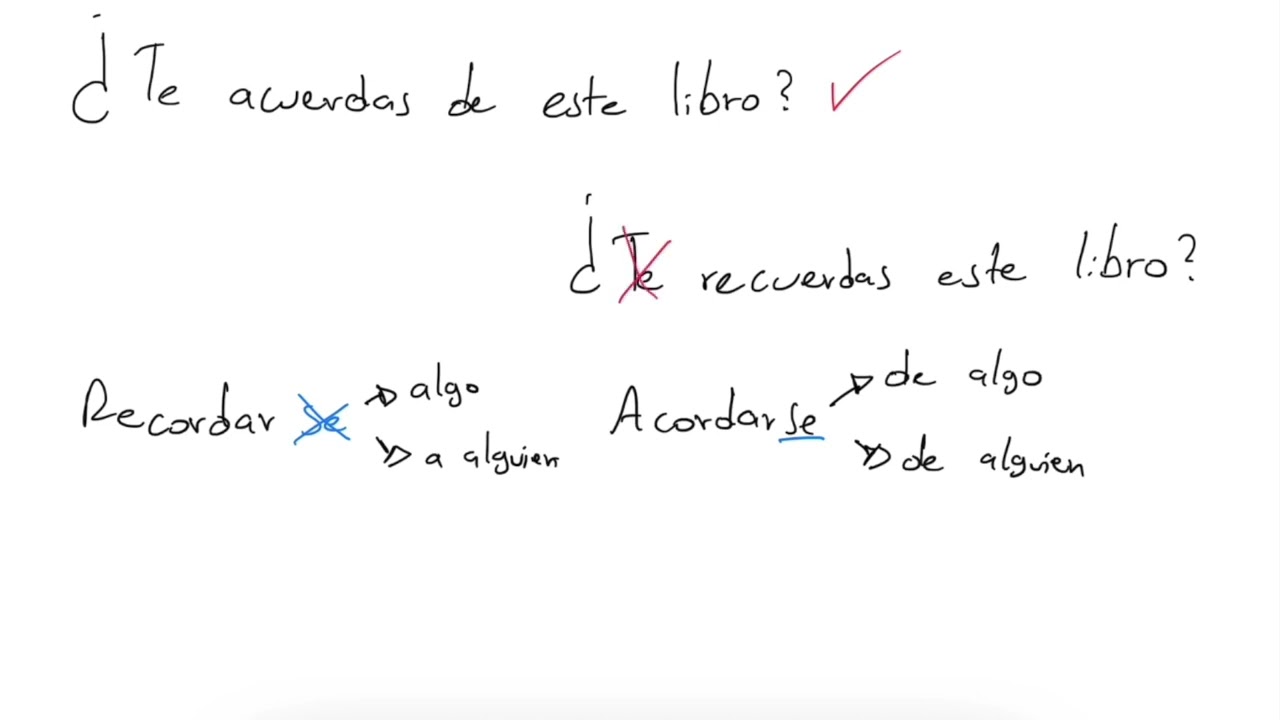 ¿Te acuerdas de este libro?
¿Te recuerdas este libro?
Recordar se algo
a alguien
Acordarse de algo
de alguien